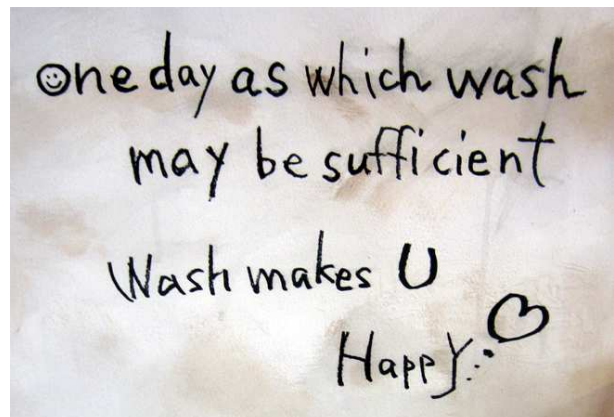 One day as which wash
may be sufficient
Wash makes U
Happy...